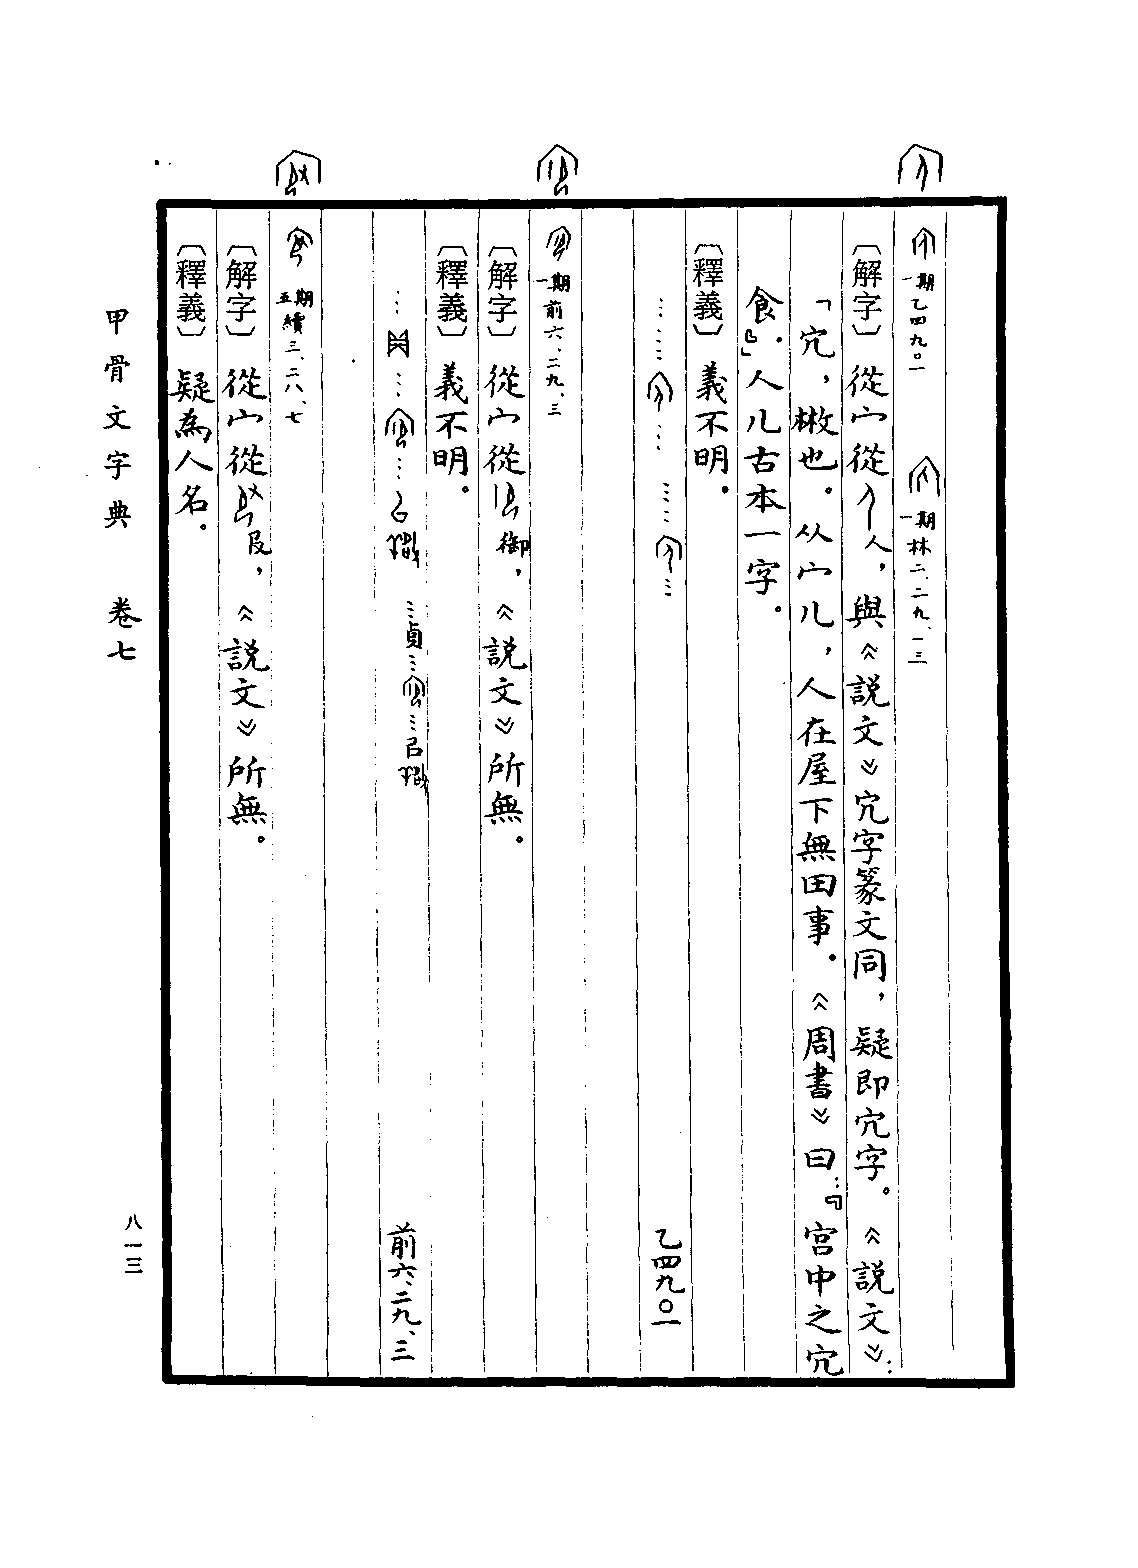 一期乙四九〇一　一期林二、二九、一三
〔解字〕從宀從人，與《説文》宂字篆文同，疑即宂字。《説文》：
「宂，㪔也。从宀儿，人在屋下無田事。《周書》曰：『宮中之宂
食。』」人儿古本一字。
〔釋義〕義不明。
……　……　乙四九〇一
一期前六、二九、三
〔解字〕從宀從御，《説文》所無。
〔釋義〕義不明。
……貞……㠯　前六、二九、三
五期續三、二八、七
〔解字〕從宀從𠬝，《説文》所無。
〔釋義〕疑為人名。
甲骨文字典　卷七
八一三